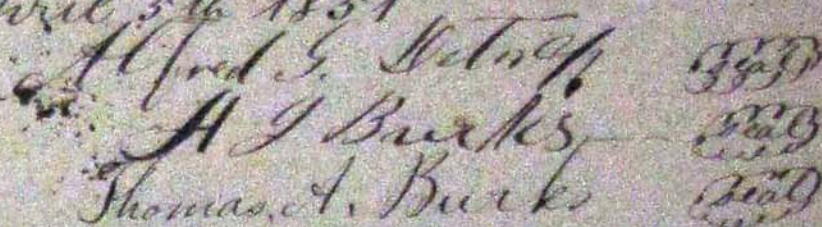 April 5th 1851
Alfred G. (Seal)
A J Burks (Seal)
Thomas. A. Burks (Seal)